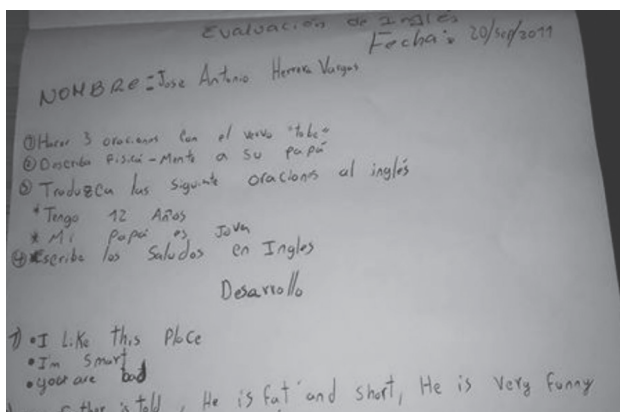 Evaluación de Inglés
Fecha: 20/sep/2011
NOMBRE: Jose Antonio Herrera Vargas
① Hacer 3 oraciones con el verbo "tobe"
② Describa Fisica-Mente a su papá
③ Traduzca las siguiente oraciones al inglés
* Tengo 12 Años
* Mi papá es Joven
④ Escriba los Saludos en Ingles
Desarrollo
1) • I Like this Place
• I'm Smart
• your are bad
father is told, He is fat and short, He is very funny